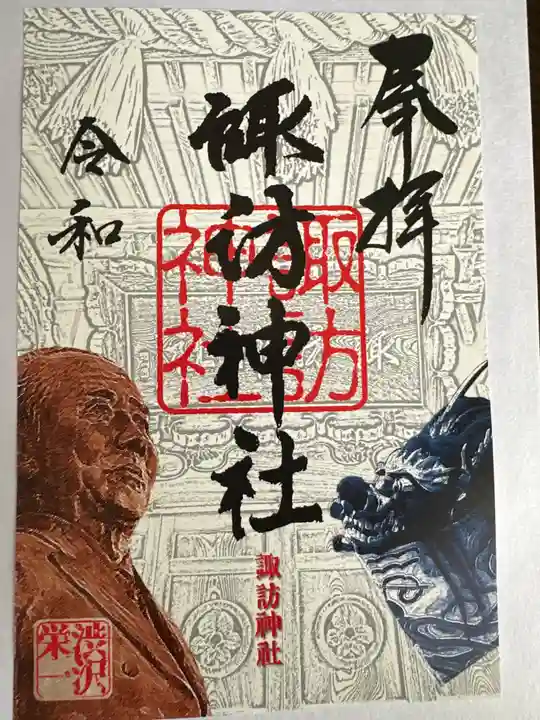 奉拝
諏訪神社
諏訪神社
令和
諏訪神社
渋沢
栄一